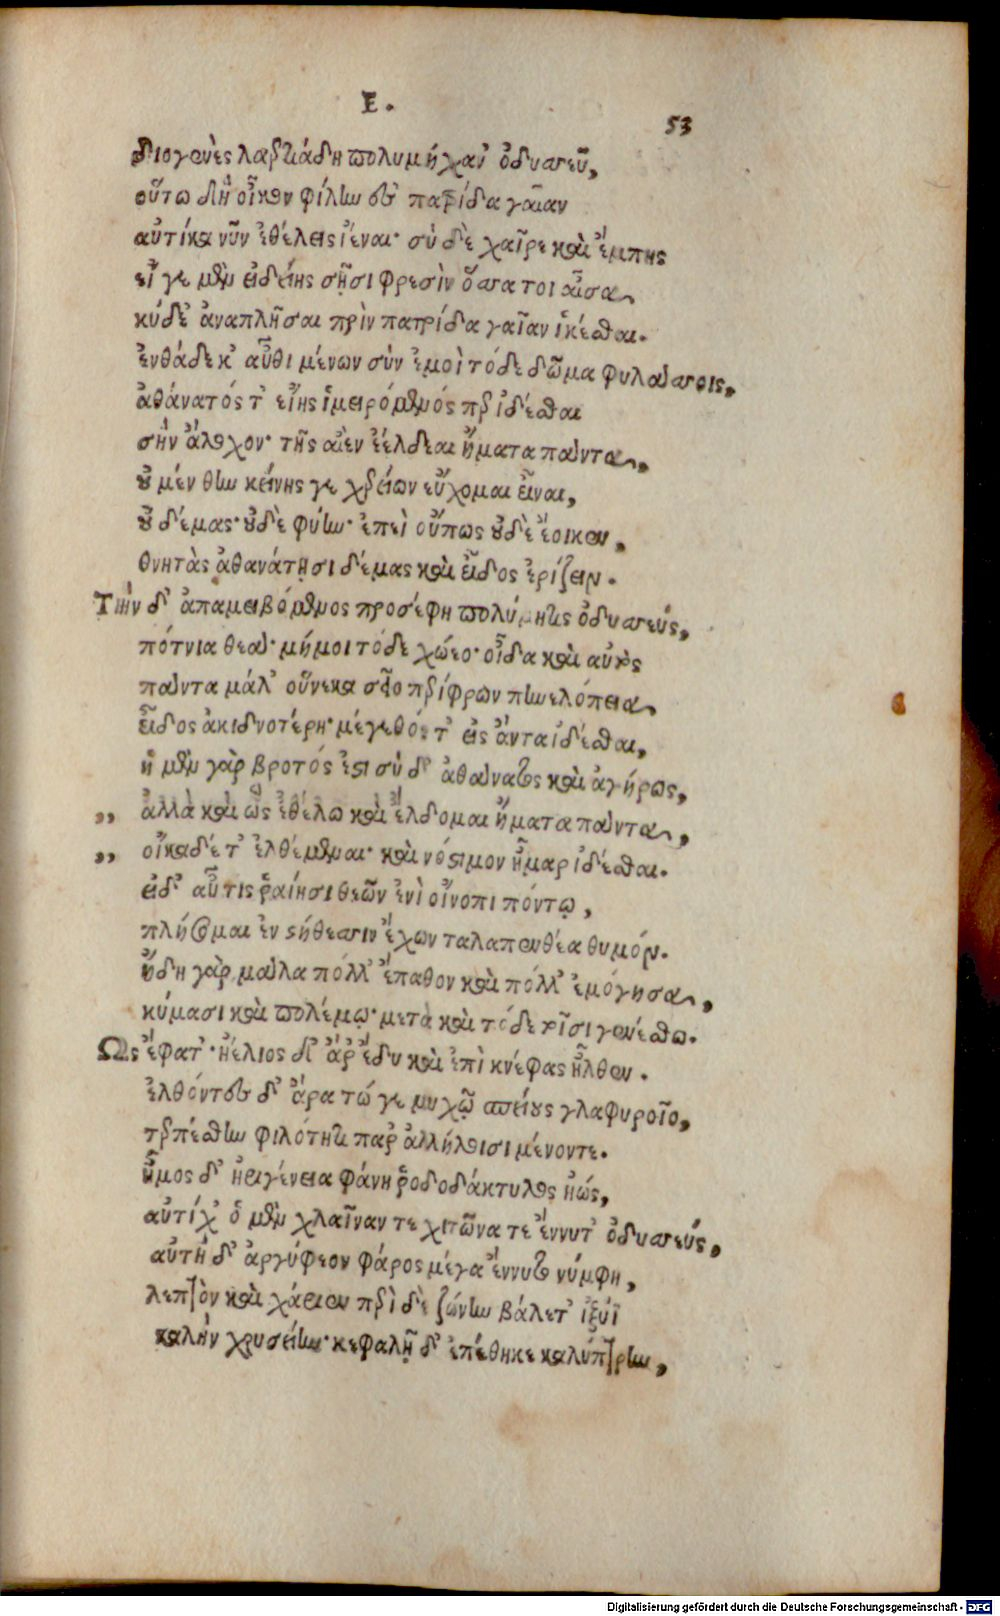 Ε.
53
διογενὲς λαερτιάδη πολυμήχαν' ὀδυσσεῦ,
οὕτω δὴ οἶκον φίλην ἐς πατρίδα γαῖαν
αὐτίκα νῦν ἐθέλεις ἰέναι· σὺ δὲ χαῖρε καὶ ἔμπης
εἴ γε μὲν εἰδείης σῇσι φρεσὶν ὅσσα τοι αἶσα
κήδε' ἀναπλῆσαι πρὶν πατρίδα γαῖαν ἱκέσθαι.
ἐνθάδε κ' αὖθι μένων σὺν ἐμοὶ τόδε δῶμα φυλάσσοις,
ἀθάνατός τ' εἴης ἱμειρόμενός περ ἰδέσθαι
σὴν ἄλοχον· τῆς αἰὲν ἐέλδεαι ἤματα πάντα,
οὐ μέν θην κείνης γε χερείων εὔχομαι εἶναι,
οὐ δέμας· οὐδὲ φυήν· ἐπεὶ οὔπως οὐδὲ ἔοικεν,
θνητὰς ἀθανάτῃσι δέμας καὶ εἶδος ἐρίζειν.
Τὴν δ' ἀπαμειβόμενος προσέφη πολύμητις ὀδυσσεύς,
πότνια θεά· μή μοι τόδε χώεο· οἶδα καὶ αὐτὸς
πάντα μάλ' οὕνεκα σεῖο περίφρων πηνελόπεια
εἶδος ἀκιδνοτέρη· μέγεθός τ' εἰς ἄντα ἰδέσθαι,
ἡ μὲν γὰρ βροτός ἐστι σὺ δ' ἀθάνατος καὶ ἀγήρως,
,, ἀλλὰ καὶ ὧς ἐθέλω καὶ ἔλδομαι ἤματα πάντα,
,, οἴκαδέ τ' ἐλθέμεναι· καὶ νόστιμον ἦμαρ ἰδέσθαι.
εἰδ' αὖτις ῥαίῃσι θεῶν ἐνὶ οἴνοπι πόντῳ,
πλήσομαι ἐν στήθεσσιν ἔχων ταλαπενθέα θυμόν.
ἤδη γὰρ μάλα πόλλ' ἔπαθον καὶ πόλλ' ἐμόγησα,
κύμασι καὶ πολέμῳ· μετὰ καὶ τόδε τοῖσι γενέσθω.
Ὣς ἔφατ'· ἠέλιος δ' ἄρ' ἔδυ καὶ ἐπὶ κνέφας ἦλθεν.
ἐλθόντες δ' ἄρα τώ γε μυχῷ σπείους γλαφυροῖο,
τερπέσθην φιλότητι παρ' ἀλλήλοισι μένοντε.
ἦμος δ' ἠριγένεια φάνη ῥοδοδάκτυλος ἠώς,
αὐτίχ' ὁ μὲν χλαῖναν τε χιτῶνα τε ἕννυτ' ὀδυσσεύς,
αὐτὴ δ' ἀργύφεον φάρος μέγα ἕννυτο νύμφη,
λεπτὸν καὶ χάριεν περὶ δὲ ζώνην βάλετ' ἰξυῖ
καλὴν χρυσείην· κεφαλῇ δ' ἐπέθηκε καλύπτρην,
Digitalisierung gefördert durch die Deutsche Forschungsgemeinschaft - DFG